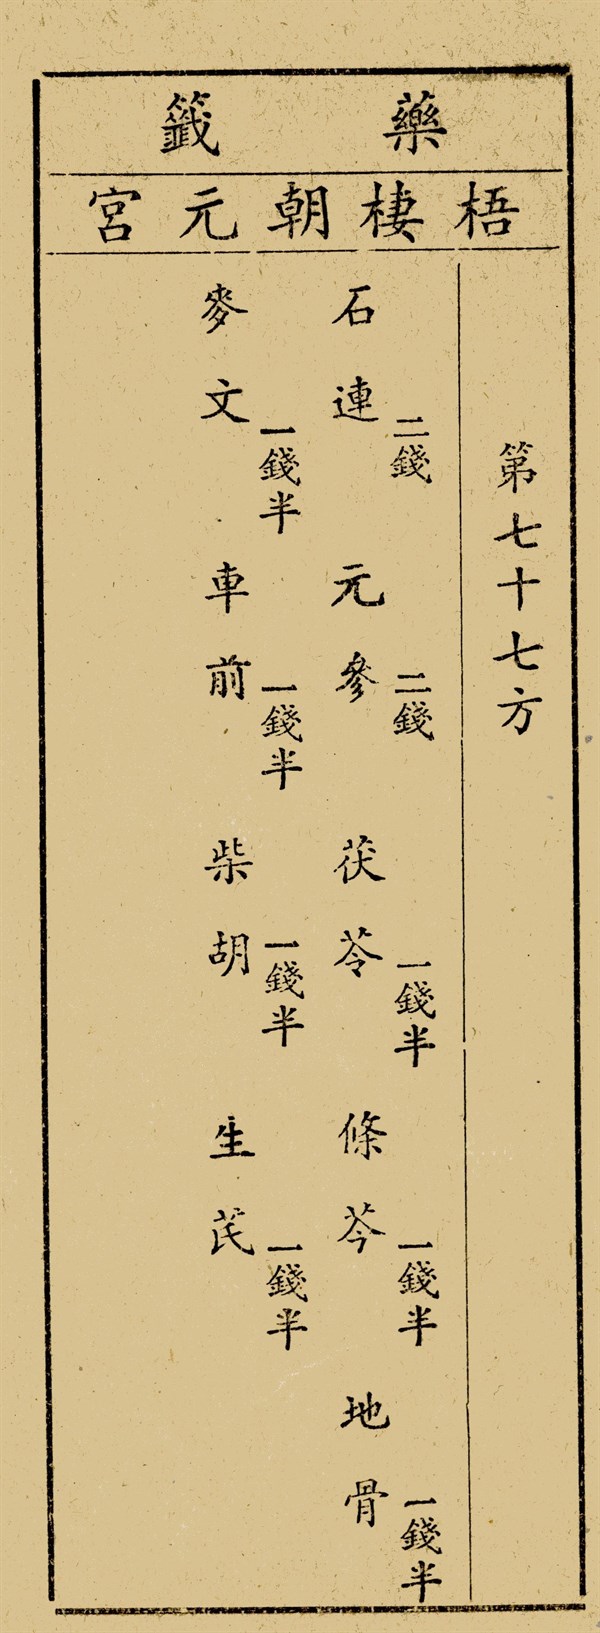 藥籤
梧棲朝元宮
第七十七方
石連二錢 元參二錢 茯苓一錢半 條芩一錢半 地骨一錢半
麥文一錢半 車前一錢半 柴胡一錢半 生芪一錢半